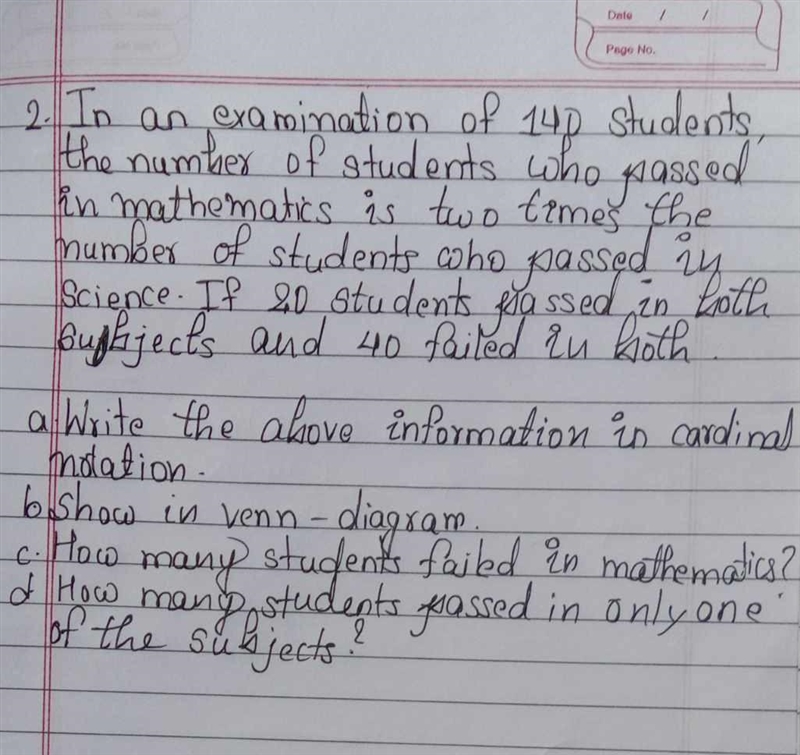 Date / /
Page No.
2. In an examination of 140 students,
the number of students who passed
in mathematics is two times the
number of students who passed in
Science. If 20 students passed in both
subjects and 40 failed in both.
a Write the above information in cardinal
notation.
b. Show in venn-diagram.
c. How many students failed in mathematics?
d How many students passed in only one
of the subjects?